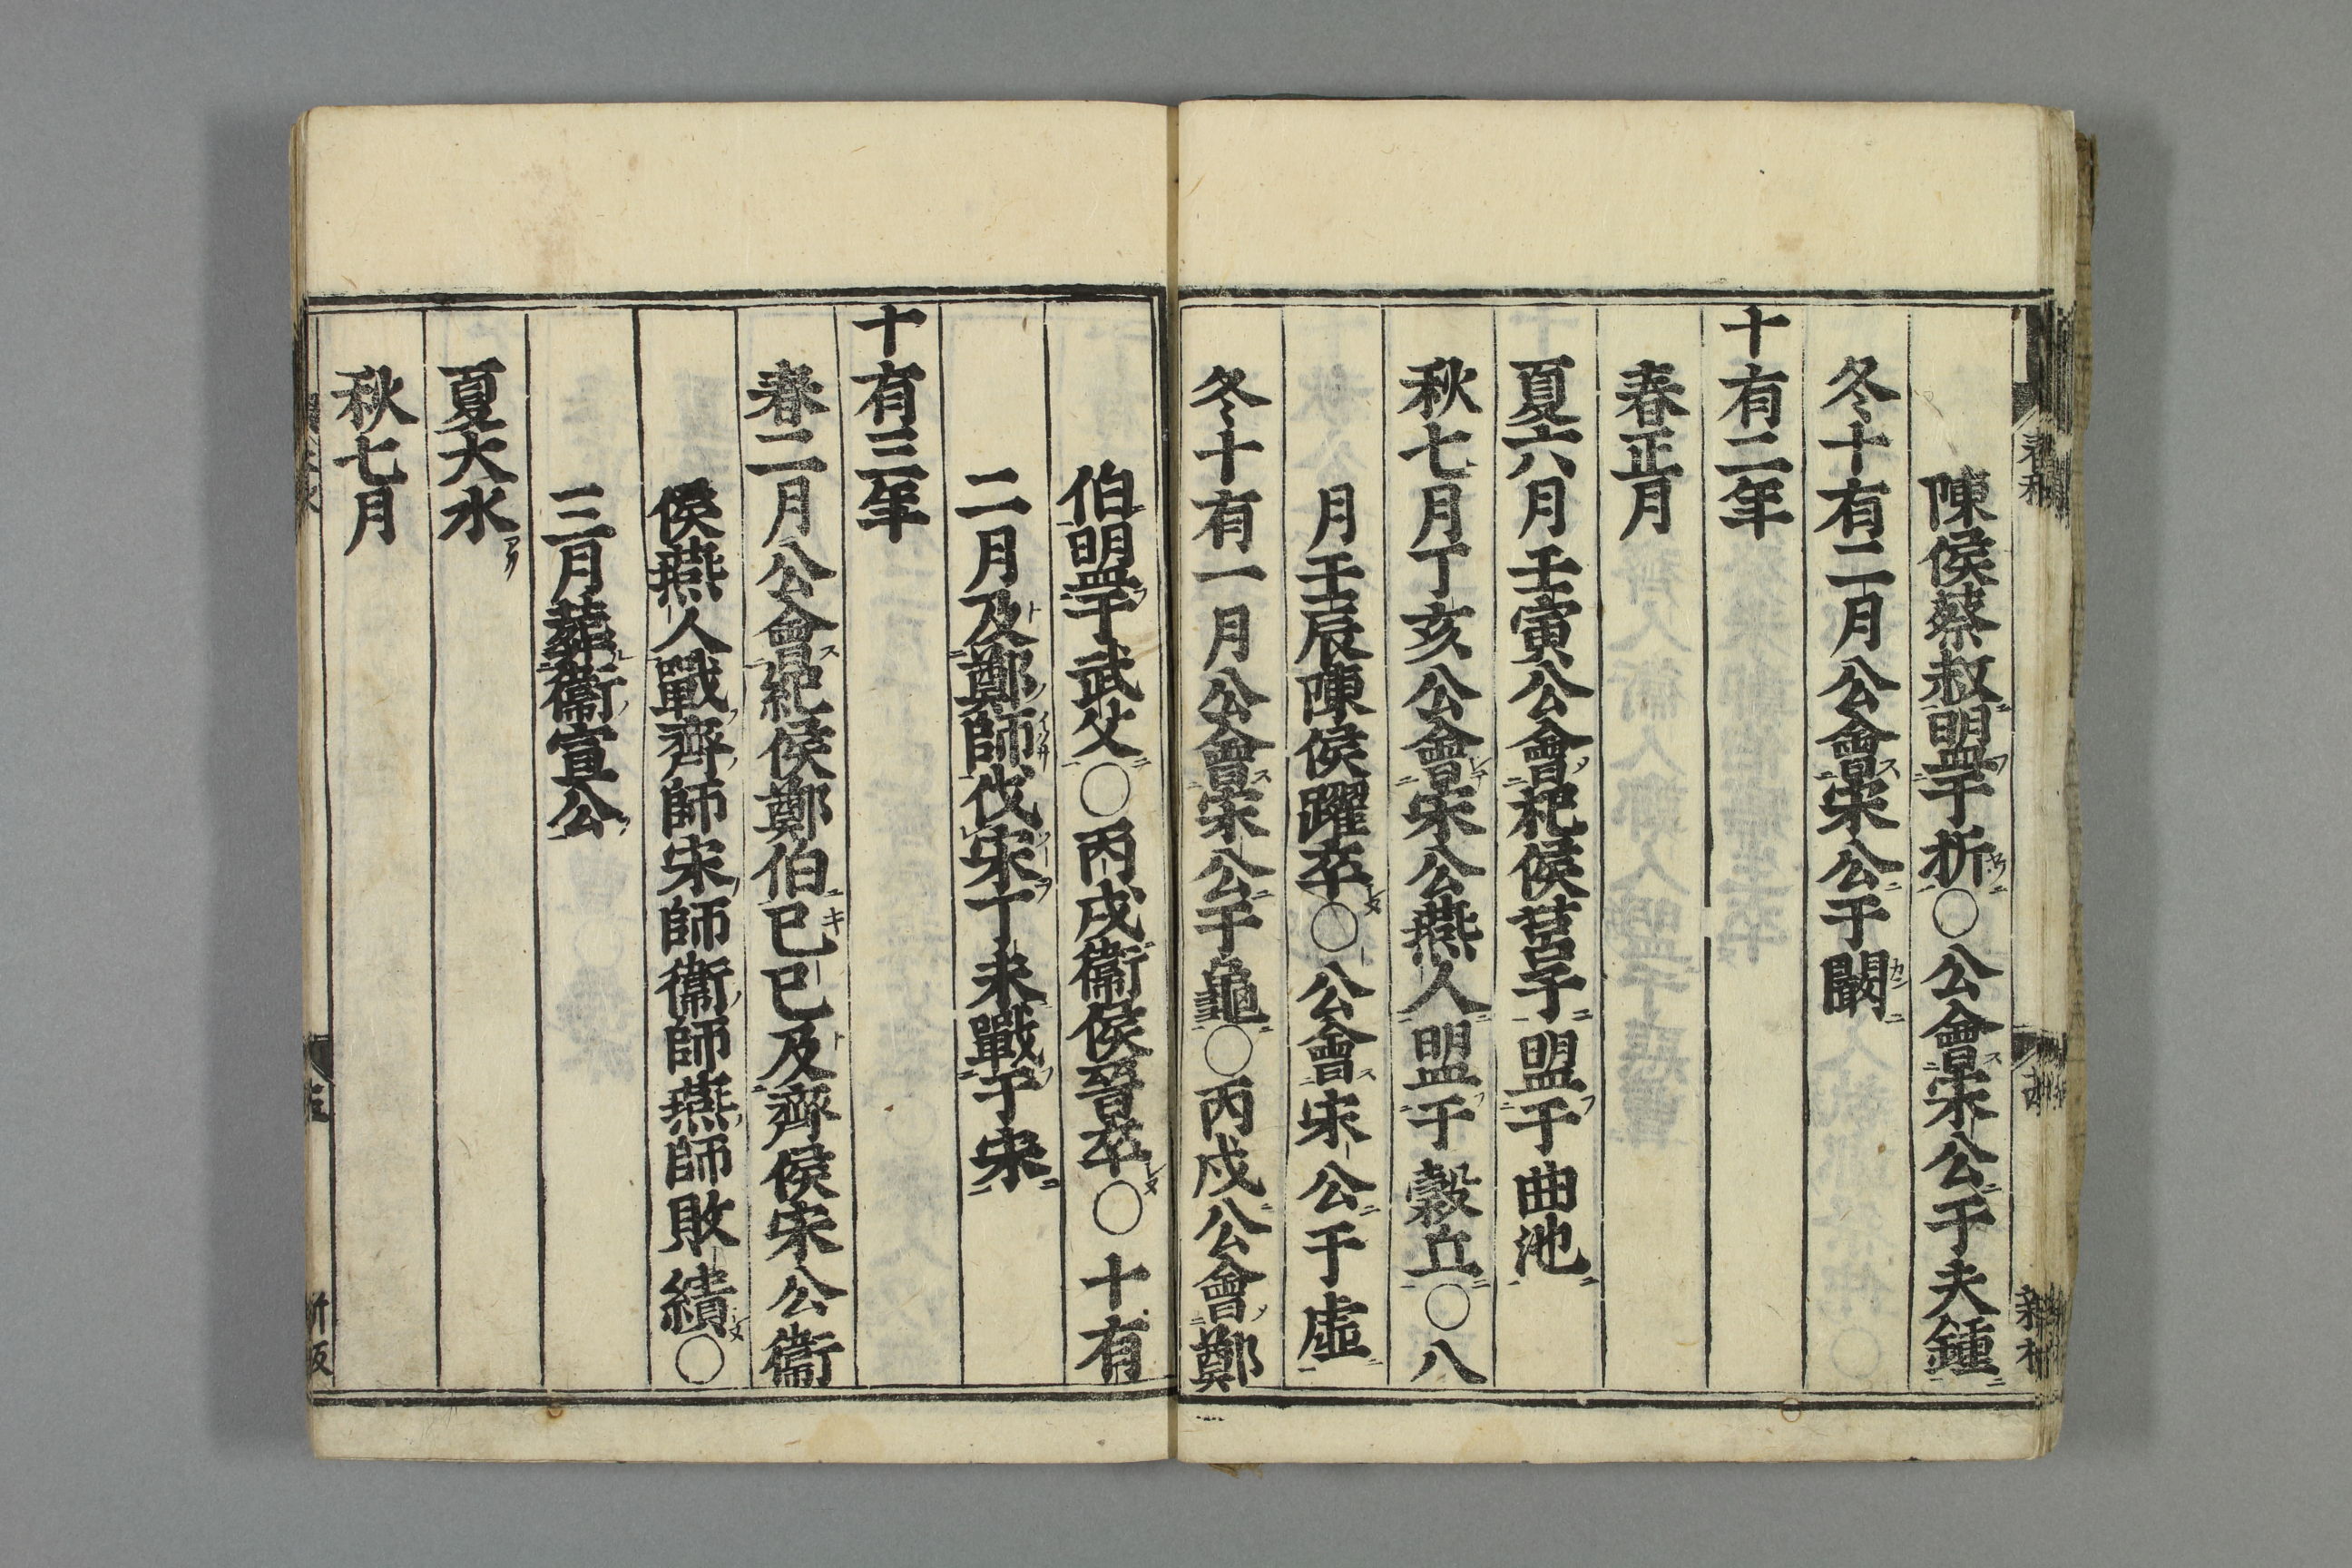 陳侯蔡叔盟于折○公會宋公于夫鍾
冬十有二月公會宋公于闞
十有二年
春正月
夏六月壬寅公會杞侯莒子盟于曲池
秋七月丁亥公會宋公燕人盟于穀丘○八
月壬辰陳侯躍卒○公會宋公于虛
冬十有一月公會宋公于龜○丙戌公會鄭
伯盟于武父○丙戌衞侯晉卒○十有
二月及鄭師伐宋丁未戰于宋
十有三年
春二月公會紀侯鄭伯己巳及齊侯宋公衞
侯燕人戰齊師宋師衞師燕師敗績○
三月葬衞宣公
夏大水
秋七月